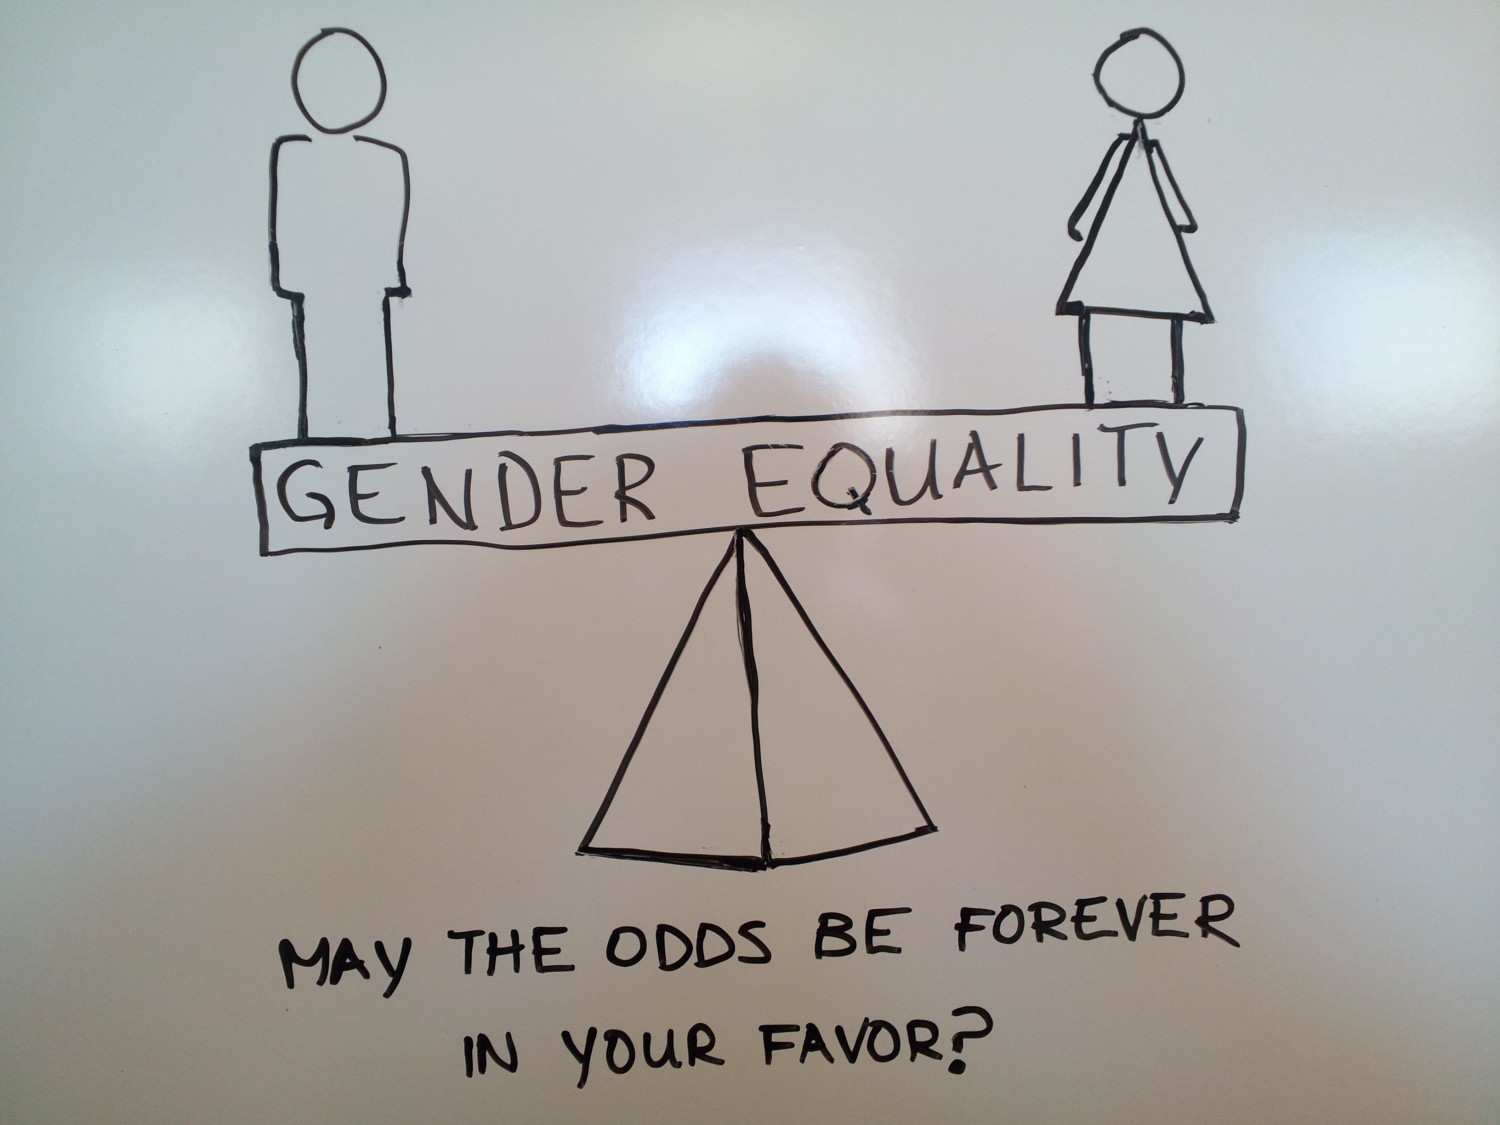 GENDER EQUALITY
MAY THE ODDS BE FOREVER
IN YOUR FAVOR?